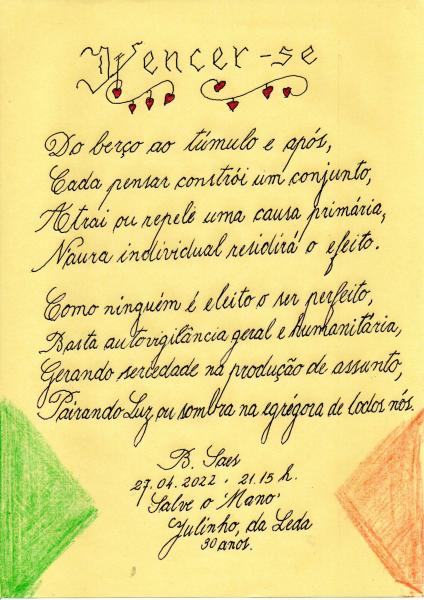 Vencer-se
Do berço ao túmulo e após,
Cada pensar constrói um conjunto,
Atrai ou repele uma causa primária,
N'aura individual residirá o efeito.
Como ninguém é eleito o ser perfeito,
Basta autovigilância geral e humanitária,
Gerando seriedade na produção de assunto,
Pairando Luz ou sombra na egrégora de todos nós.
B. Saes
27.04.2022 . 21.15 h.
Salve o 'Mano'
Julinho, da Leda
30 anos.